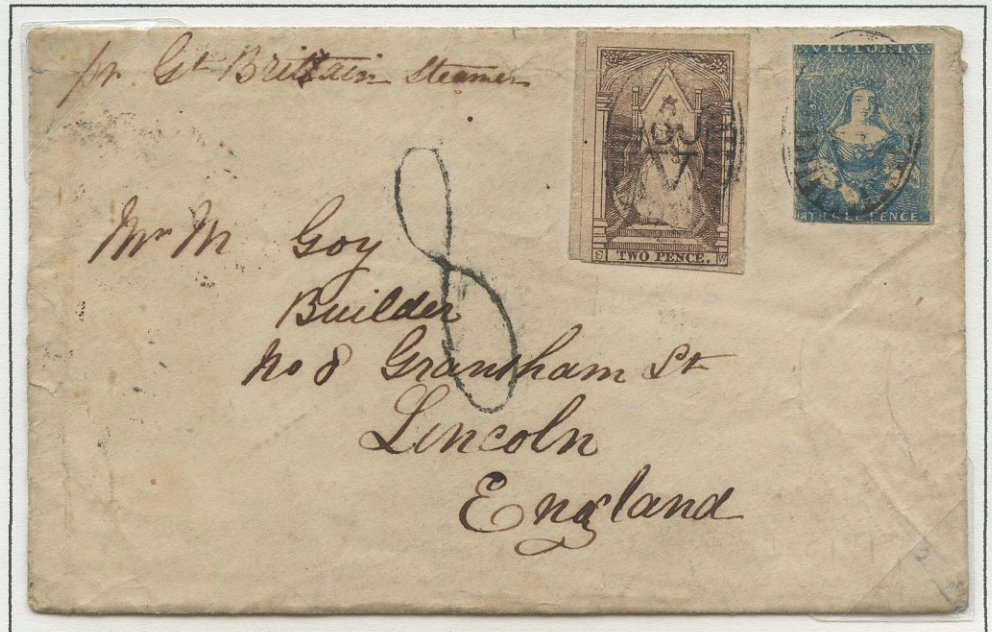 pr Gt Brittain Steamer
VICTORIA
THREE PENCE
TWO PENCE.
V
8
Mr M Goy
Builder
No 8 Grantham St
Lincoln
England